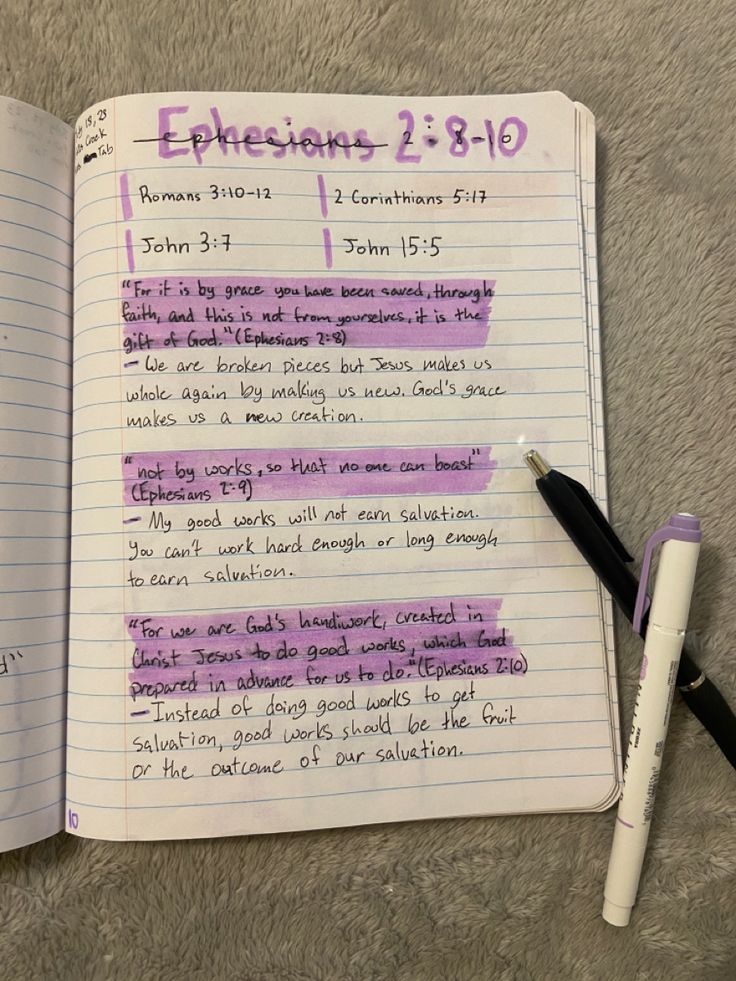 18, 23
Creek
Tab
Ephesians 2:8-10
ephesians 2:8-10
Romans 3:10-12
2 Corinthians 5:17
John 3:7
John 15:5
"For it is by grace you have been saved, through
faith, and this is not from yourselves, it is the
gift of God." (Ephesians 2:8)
- We are broken pieces but Jesus makes us
whole again by making us new. God's grace
makes us a new creation.
"not by works, so that no one can boast"
(Ephesians 2:9)
- My good works will not earn salvation.
You can't work hard enough or long enough
to earn salvation.
"For we are God's handiwork, created in
Christ Jesus to do good works, which God
prepared in advance for us to do." (Ephesians 2:10)
- Instead of doing good works to get
salvation, good works should be the fruit
or the outcome of our salvation.
10